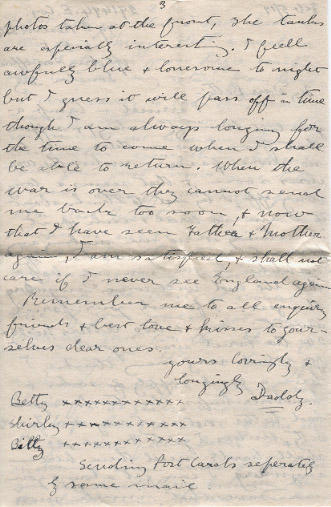 3
photos taken at the front, the tanks
are especially interesting. I feell
awfully blue & lonesome to night
but I guess it will pass off in time
though I am always longing for
the time to come when I shall
be able to return. When the
war is over they cannot send
me back too soon, & now
that I have seen Father & Mother
again, I am satisfied, & shall not
care if I never see England again
Remember me to all enquiring
friends & best love & kisses to your-
selves dear ones.
yours lovingly &
longingly Daddy.
Betty xxxxxxxxxxxx
Shirley xxxxxxxxxxxx
Billy xxxxxxxxxxxx
Sending Post Cards seperately
by same mail